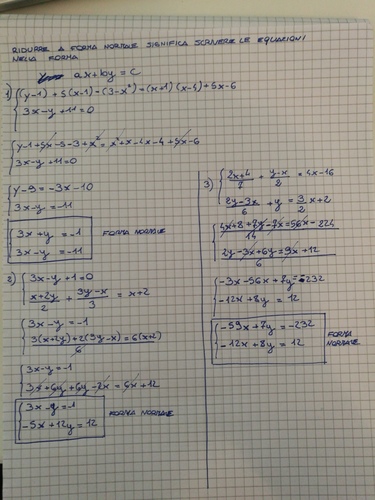 RIDURRE A FORMA NORMALE SIGNIFICA SCRIVERE LE EQUAZIONI
NELLA FORMA
ax+by=c
1) (y-1)+5(x-1)-(3-x²)=(x+1)(x-4)+5x-6
3x-y+11=0
y-1+5x-5-3+x²=x²+x-4x-4+5x-6
3x-y+11=0
y-9=-3x-10
3x-y=-11
3x+y=-1 FORMA NORMALE
3x-y=-11
2) 3x-y+1=0
x+2y/2 + 3y-x/3 = x+2
3x-y=-1
3(x+2y)+2(3y-x)=6(x+2)
6
3x-y=-1
3x+6y+6y-2x=6x+12
3x-y=-1 FORMA NORMALE
-5x+12y=12
3) 2x+4/7 + y-x/2 = 4x-16
2y-3x/6 + y = 3/2 x+2
4x+8+7y-7x=56x-224
14
2y-3x+6y=9x+12
6
-3x-56x+7y=-232
-12x+8y=12
-59x+7y=-232 FORMA
-12x+8y=12 NORMALE